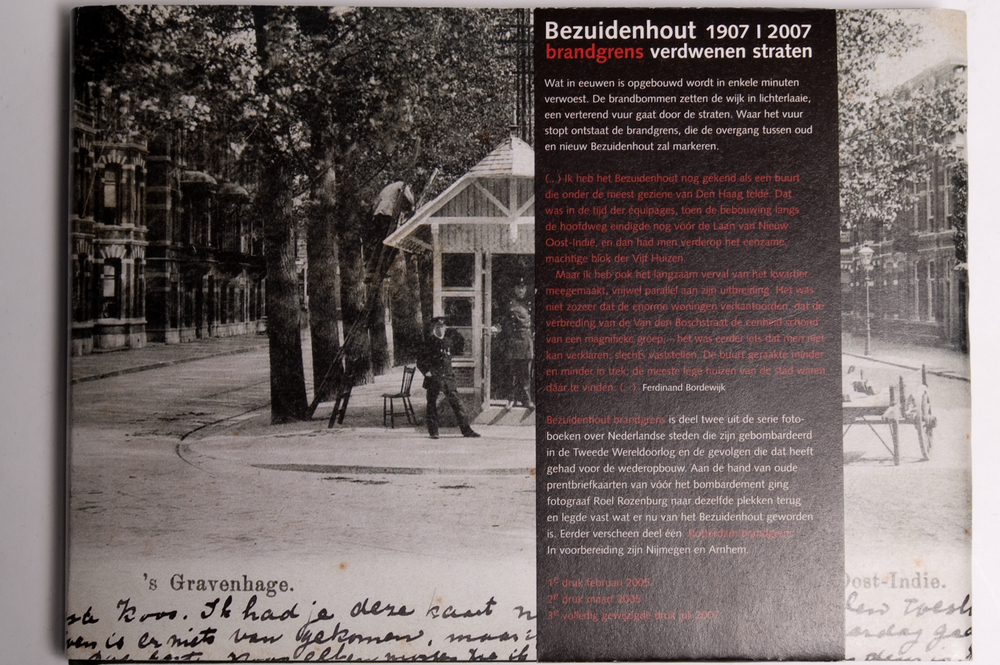 Bezuidenhout 1907 | 2007
brandgrens verdwenen straten
Wat in eeuwen is opgebouwd wordt in enkele minuten
verwoest. De brandbommen zetten de wijk in lichterlaaie,
een verterend vuur gaat door de straten. Waar het vuur
stopt ontstaat de brandgrens, die de overgang tussen oud
en nieuw Bezuidenhout zal markeren.
(...) Ik heb het Bezuidenhout nog gekend als een buurt
die onder de meest geziene van Den Haag telde. Dat
was in de tijd der équipages, toen de bebouwing langs
de hoofdweg eindigde nog vóór de Laan van Nieuw
Oost-Indië, en dan had men verderop het eenzame,
machtige blok der Vijf Huizen.
Maar ik heb ook het langzaam verval van het kwartier
meegemaakt, vrijwel parallel aan zijn uitbreiding. Het was
niet zozeer dat de enorme woningen verkantoorden, dat de
verbreding van de Van den Boschstraat de eenheid schond
van een magnifieke groep, – het was eerder iets dat men niet
kan verklaren, slechts vaststellen. De buurt geraakte minder
en minder in trek; de meeste lege huizen van de stad waren
daar te vinden. (...) Ferdinand Bordewijk
Bezuidenhout brandgrens is deel twee uit de serie foto-
boeken over Nederlandse steden die zijn gebombardeerd
in de Tweede Wereldoorlog en de gevolgen die dat heeft
gehad voor de wederopbouw. Aan de hand van oude
prentbriefkaarten van vóór het bombardement ging
fotograaf Roel Rozenburg naar dezelfde plekken terug
en legde vast wat er nu van het Bezuidenhout geworden
is. Eerder verscheen deel één Rotterdam brandgrens.
In voorbereiding zijn Nijmegen en Arnhem.
1e druk februari 2005
2e druk maart 2005
3e volledig gewijzigde druk juli 2007
's Gravenhage.
Oost-Indie.
Koos. Ik had je deze kaart
is er niets van gekomen, maar